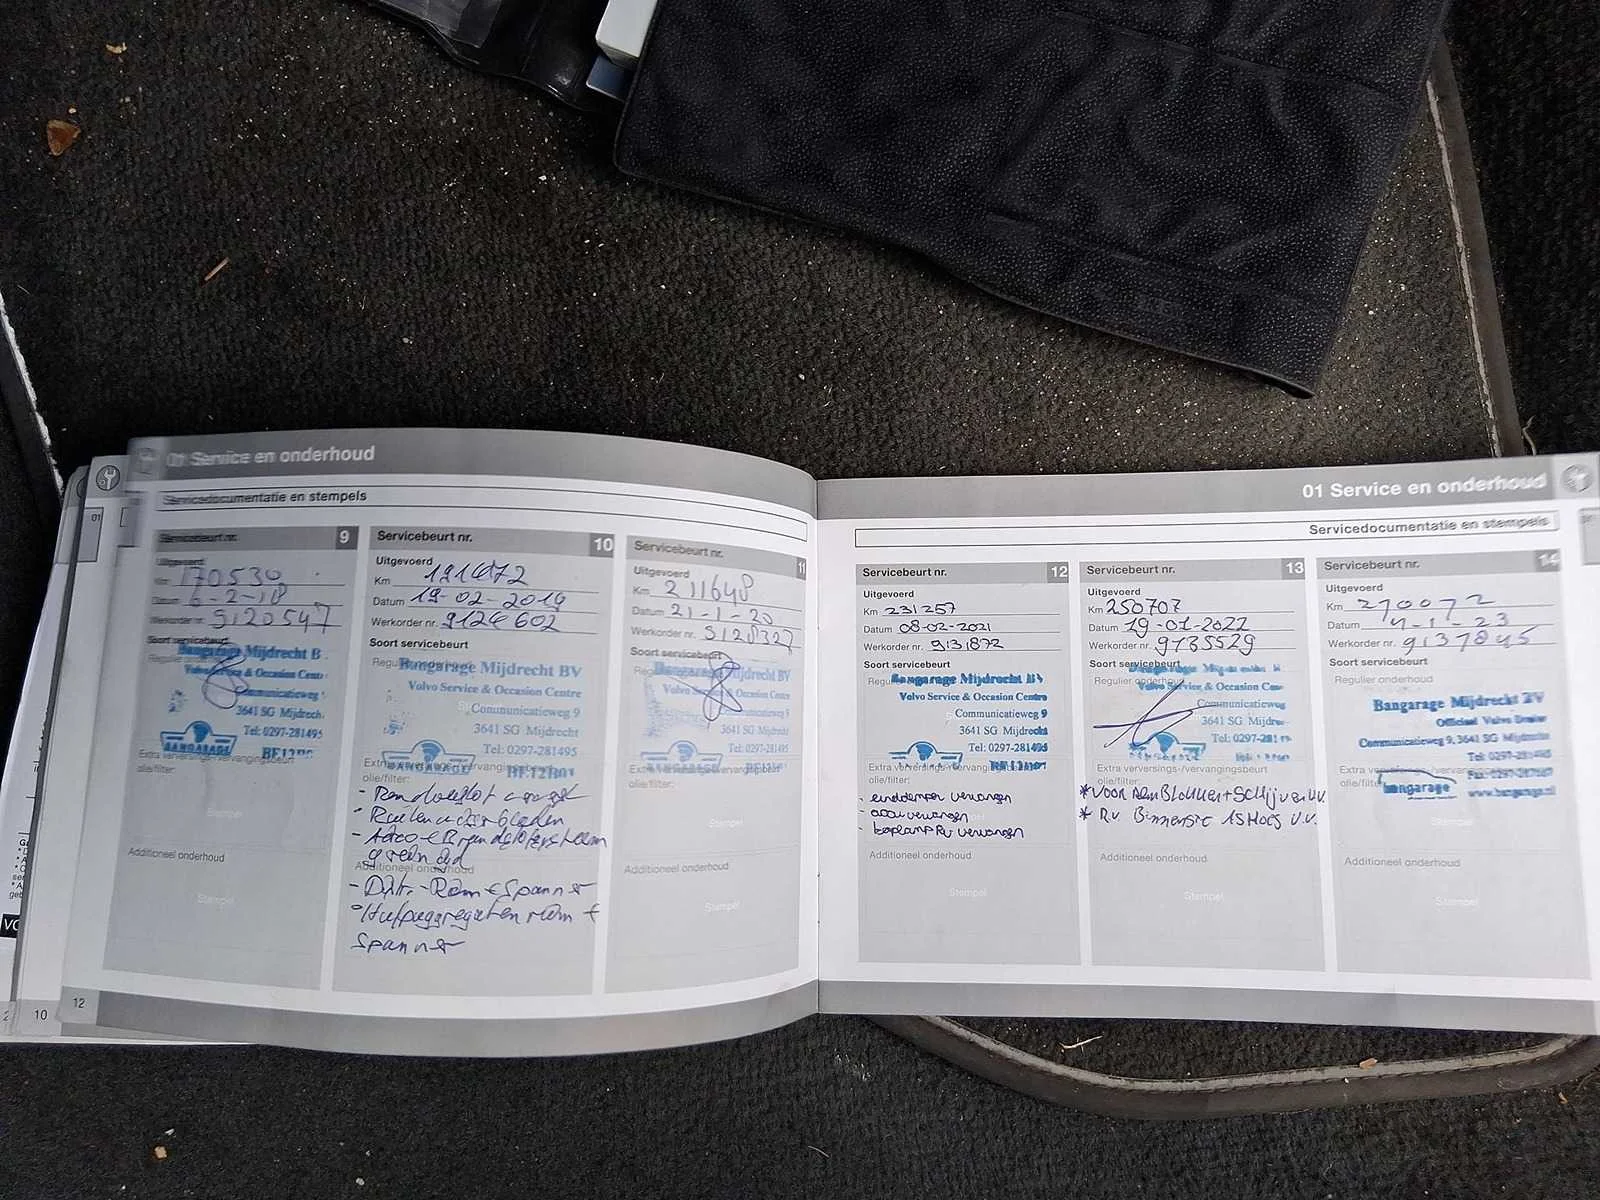 01 Service en onderhoud
Servicedocumentatie en stempels
Servicebeurt nr. 9
Uitgevoerd
Km 170530
Datum 6-2-18
Werkorder nr. 9120547
Soort servicebeurt
Regulier
Bangarage Mijdrecht B
Volvo Service & Occasion Cent
Communicatieweg
3641 SG Mijdrech
Tel: 0297-281495
BANGARAGE
Extra verversings-/vervangingsbeurt
olie/filter:
Stempel
Additioneel onderhoud
Stempel
Servicebeurt nr. 10
Uitgevoerd
Km
Datum 19-02-2019
Werkorder nr. 9124602
Soort servicebeurt
Bangarage Mijdrecht BV
Volvo Service & Occasion Centre
Communicatieweg 9
3641 SG Mijdrecht
Tel: 0297-281495
BANGARAGE
Extra verversings-/vervangingsbeurt
olie/filter:
- Ruitenwisserbladen
Additioneel onderhoud
- Distr.-Riem + Spanner
- Hulpaggregaten riem +
Spanner
Servicebeurt nr. 11
Uitgevoerd
Km 211648
Datum 21-1-20
Werkorder nr. 9128327
Soort servicebeurt
Bangarage Mijdrecht BV
Volvo Service & Occasion Centre
3641 SG Mijdrecht
Tel: 0297-281495
Extra verversings-/vervangingsbeurt
olie/filter:
Stempel
Additioneel onderhoud
Stempel
12
10
01 Service en onderhoud
Servicedocumentatie en stempels
Servicebeurt nr. 12
Uitgevoerd
Km 231257
Datum 08-02-2021
Werkorder nr. 9131872
Soort servicebeurt
Bangarage Mijdrecht BV
Volvo Service & Occasion Centre
Communicatieweg 9
3641 SG Mijdrecht
Tel: 0297-281495
Extra verversings-/vervangingsbeurt
olie/filter:
- einddemper vervangen
- accu vervangen
- koplamp RV vervangen
Additioneel onderhoud
Stempel
Servicebeurt nr. 13
Uitgevoerd
Km 250707
Datum 19-01-2022
Werkorder nr. 9135529
Soort servicebeurt
Regulier onderhoud
Volvo Service & Occasion Cen
Communicatieweg
3641 SG Mijdre
Tel: 0297-281
Extra verversings-/vervangingsbeurt
olie/filter:
* Voor remBlokken + Schijven V.V.
* R.V. Binnenste ASHoes V.V.
Additioneel onderhoud
Stempel
Servicebeurt nr. 14
Uitgevoerd
Km 270072
Datum
Werkorder nr. 9137845
Soort servicebeurt
Regulier onderhoud
Bangarage Mijdrecht BV
Officieel Volvo Dealer
Communicatieweg 9, 3641 SG Mijdrecht
Tel: 0297-281495
bangarage
www.bangarage.nl
Extra verversings-/vervangingsbeurt
olie/filter:
Stempel
Additioneel onderhoud
Stempel